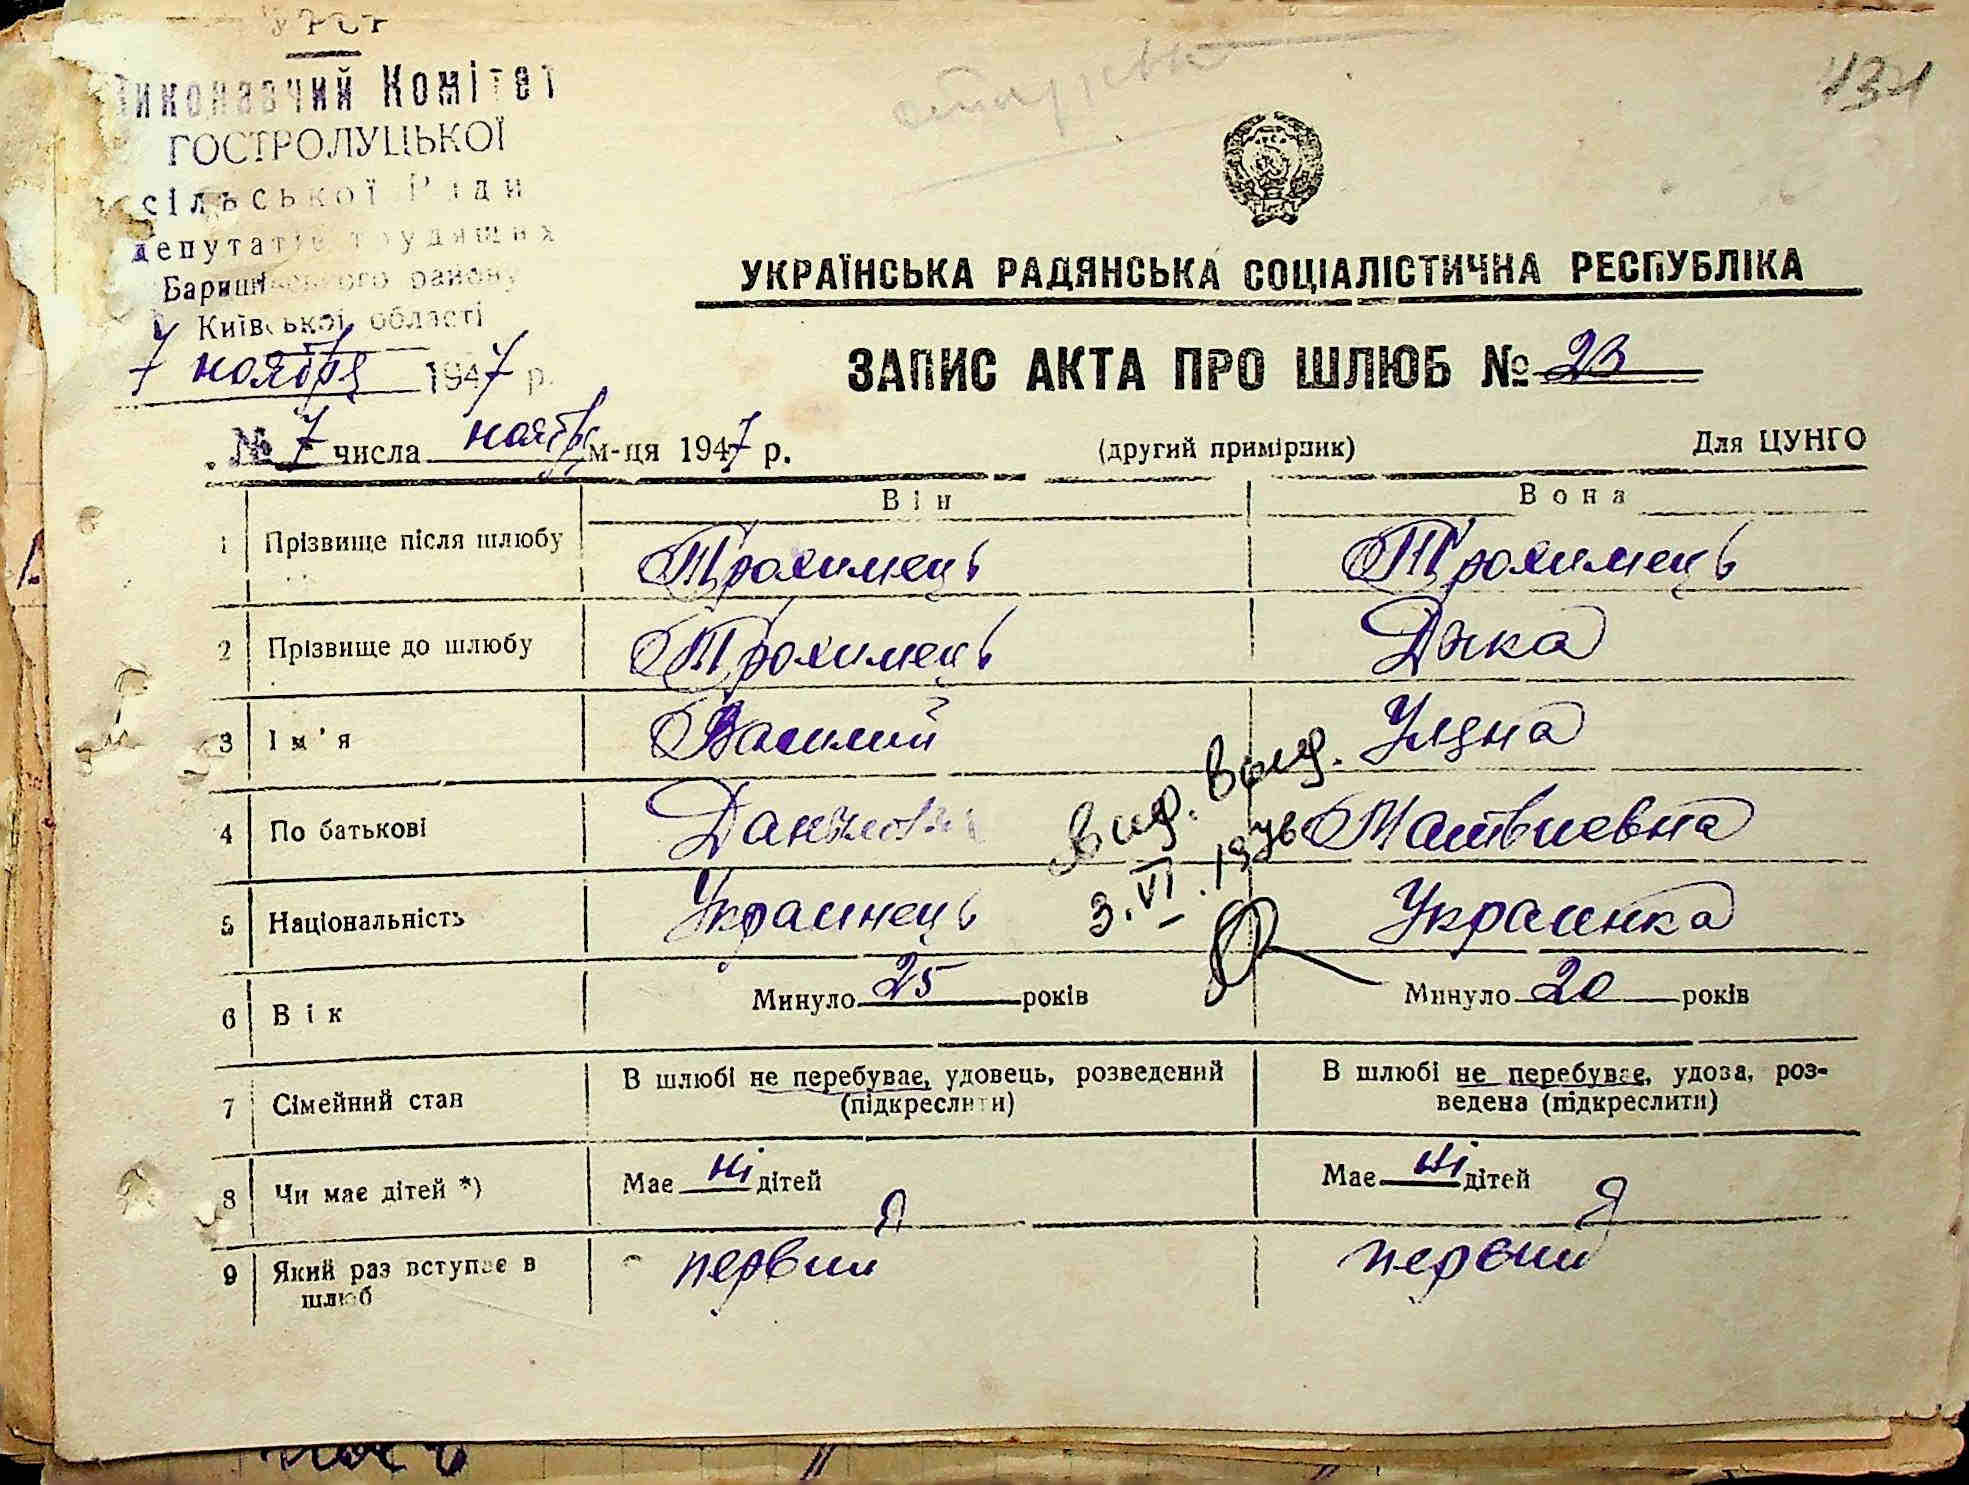 УРСР
Виконавчий Комітет
ГОСТРОЛУЦЬКОЇ
сільської Ради
депутатів трудящих
Баришівського району
Київської області
7 ноября 1947 р.
431
УКРАЇНСЬКА РАДЯНСЬКА СОЦІАЛІСТИЧНА РЕСПУБЛІКА
ЗАПИС АКТА ПРО ШЛЮБ № 23
№ 7 числа ноября м-ця 1947 р. (другий примірник) Для ЦУНГО
Він Вона
1 Прізвище після шлюбу Трохимець Трохимець
2 Прізвище до шлюбу Трохимець Дяка
3 Ім'я Василий Уляна
4 По батькові Данилович Матвиевна
Вид. 
3.VI.1976
5 Національність Украинець Украинка
6 Вік Минуло 25 років Минуло 20 років
7 Сімейний стан В шлюбі не перебуває, удовець, розведений В шлюбі не перебуває, удова, роз-
(підкреслити) ведена (підкреслити)
8 Чи має дітей *) Має ні дітей Має ні дітей
9 Який раз вступає в первий первий
шлюб